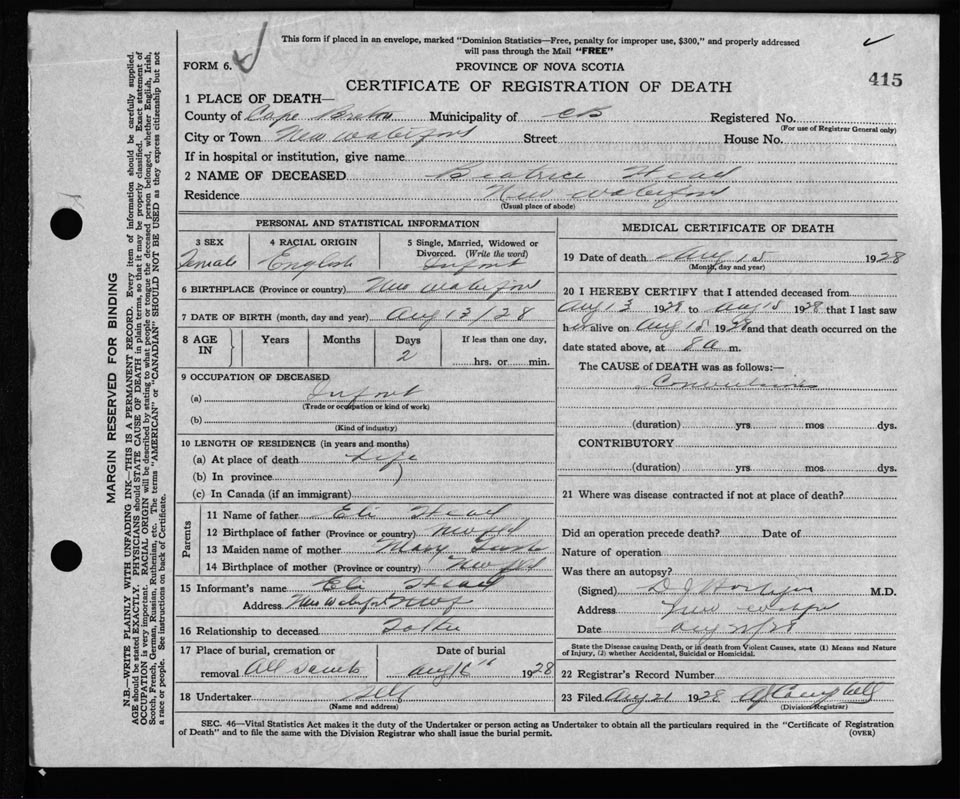 This form if placed in an envelope, marked "Dominion Statistics—Free, penalty for improper use, $300," and properly addressed
will pass through the Mail "FREE"
FORM 6.
PROVINCE OF NOVA SCOTIA
CERTIFICATE OF REGISTRATION OF DEATH
415
1 PLACE OF DEATH—
County of Cape Breton Municipality of CB Registered No.
(For use of Registrar General only)
City or Town New Waterford Street House No.
If in hospital or institution, give name
2 NAME OF DECEASED Beatrice Head
Residence New Waterford
(Usual place of abode)
PERSONAL AND STATISTICAL INFORMATION
3 SEX 4 RACIAL ORIGIN 5 Single, Married, Widowed or
Divorced. (Write the word)
Female English Infant
6 BIRTHPLACE (Province or country) New Waterford
7 DATE OF BIRTH (month, day and year) Aug 13/28
8 AGE IN Years Months Days If less than one day,
2 hrs. or min.
9 OCCUPATION OF DECEASED
(a) Infant
(Trade or occupation or kind of work)
(b)
(Kind of industry)
10 LENGTH OF RESIDENCE (in years and months)
(a) At place of death Life
(b) In province
(c) In Canada (if an immigrant)
Parents
11 Name of father Eli Head
12 Birthplace of father (Province or country) Nwfld
13 Maiden name of mother Mary
14 Birthplace of mother (Province or country) Nwfld
15 Informant's name Eli Head
Address New Waterford
16 Relationship to deceased Father
17 Place of burial, cremation or Date of burial
removal All Saints Aug 16th 1928
18 Undertaker Self
(Name and address)
MEDICAL CERTIFICATE OF DEATH
19 Date of death Aug 15 1928
(Month, day and year)
20 I HEREBY CERTIFY that I attended deceased from
Aug 13 1928 to Aug 15 1928 that I last saw
her alive on Aug 15 1928 and that death occurred on the
date stated above, at 8 a m.
The CAUSE of DEATH was as follows:—
Convulsions
(duration) yrs mos dys.
CONTRIBUTORY
(duration) yrs mos dys.
21 Where was disease contracted if not at place of death?
Did an operation precede death? Date of
Nature of operation
Was there an autopsy?
(Signed) M.D.
Address New
Date Aug /28
State the Disease causing Death, or in death from Violent Causes, state (1) Means and Nature
of Injury, (2) whether Accidental, Suicidal or Homicidal.
22 Registrar's Record Number
23 Filed Aug 21 1928 Campbell
(Division Registrar)
SEC. 46—Vital Statistics Act makes it the duty of the Undertaker or person acting as Undertaker to obtain all the particulars required in the "Certificate of Registration
of Death" and to file the same with the Division Registrar who shall issue the burial permit. (OVER)
MARGIN RESERVED FOR BINDING
N.B.—WRITE PLAINLY WITH UNFADING INK—THIS IS A PERMANENT RECORD. Every item of information should be carefully supplied.
AGE should be stated EXACTLY. PHYSICIANS should STATE CAUSE OF DEATH in plain terms, so that it may be properly classified. Exact statement of
OCCUPATION is very important. RACIAL ORIGIN will be described by stating to what people or tongue the deceased person belonged, whether English, Irish,
Scotch, French, German, Russian, Ruthenian, etc. The terms "AMERICAN" or "CANADIAN" SHOULD NOT BE USED as they express citizenship but not
a race or people. See instructions on back of Certificate.